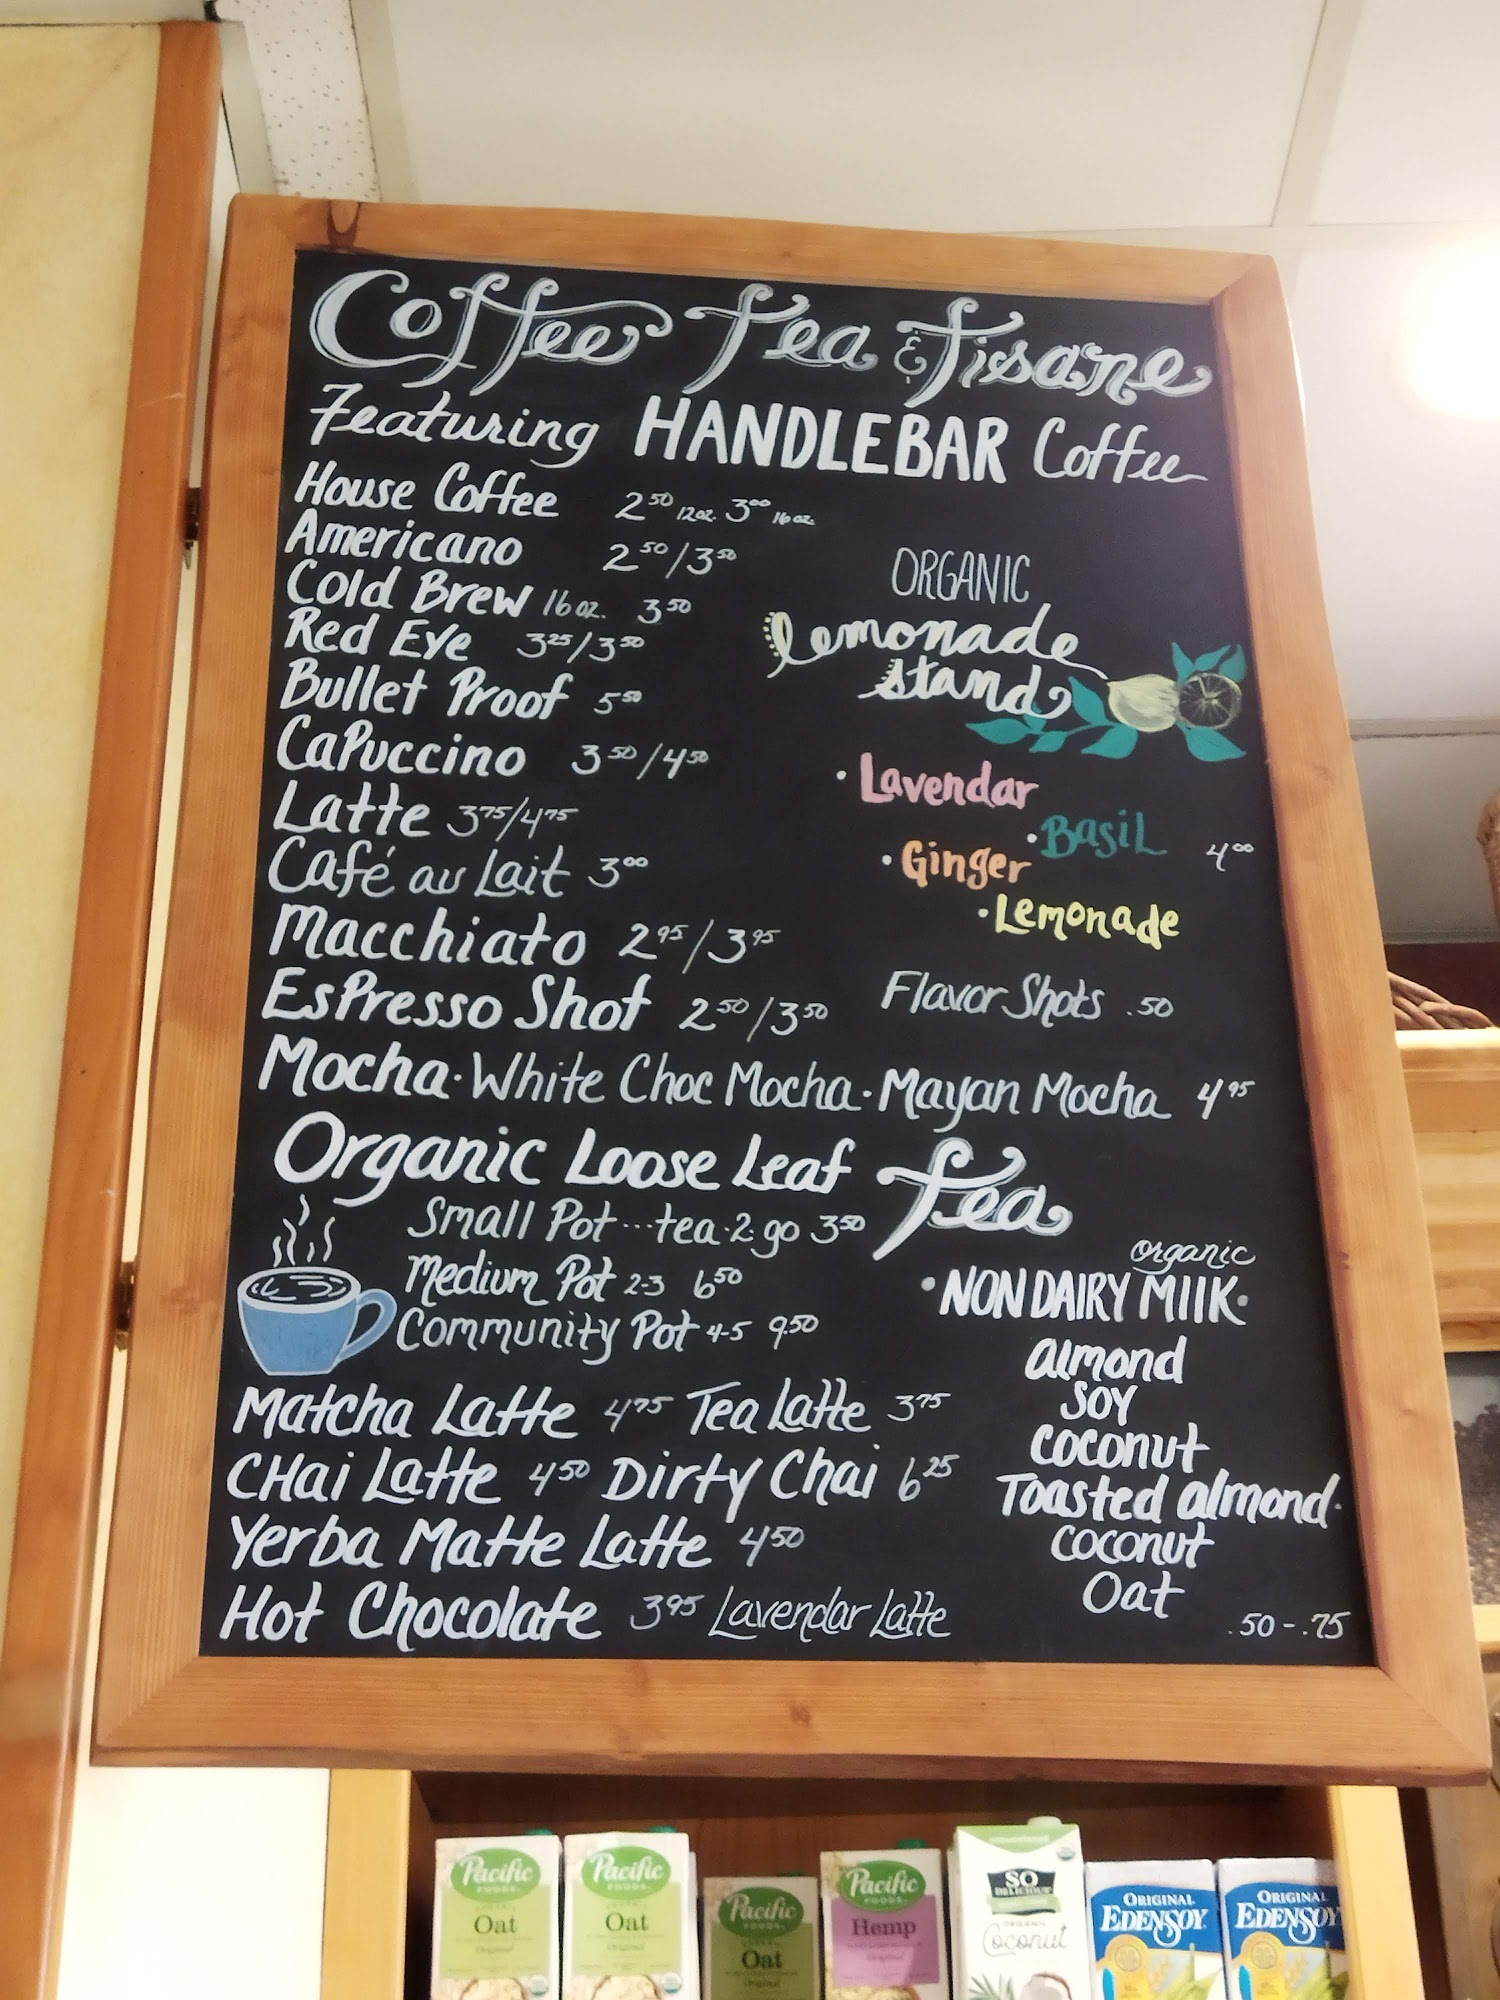 Coffee Tea & Tisane
Featuring HANDLEBAR Coffee
House Coffee 2.50 12oz. 3.00 16oz.
Americano 2.50/3.50
Cold Brew 16oz. 3.50
Red Eye 3.25/3.50
Bullet Proof 5.50
CaPuccino 3.50/4.50
Latte 3.75/4.75
Café au Lait 3.00
Macchiato 2.95/3.95
EsPresso Shot 2.50/3.50
ORGANIC
lemonade
stand
·Lavendar
·Basil 4.00
·Ginger
·Lemonade
Flavor Shots .50
Mocha·White Choc Mocha·Mayan Mocha 4.95
Organic Loose Leaf Tea
Small Pot ...tea·2·go 3.50
Medium Pot 2-3 6.50
Community Pot 4-5 9.50
Matcha Latte 4.75 Tea Latte 3.75
CHai Latte 4.50 Dirty Chai 6.25
Yerba Matte Latte 4.50
Hot Chocolate 3.95 Lavendar Latte
organic
·NONDAIRY MIlK·
almond
soy
coconut
Toasted almond·
coconut
Oat
.50-.75
Pacific
FOODS
Oat
Original
Pacific
FOODS
Oat
Original
Pacific
FOODS
Oat
Original
Pacific
FOODS
Hemp
Original
SO
DELICIOUS
ORGANIC
Coconut
ORIGINAL
EDENSOY
ORIGINAL
EDENSOY